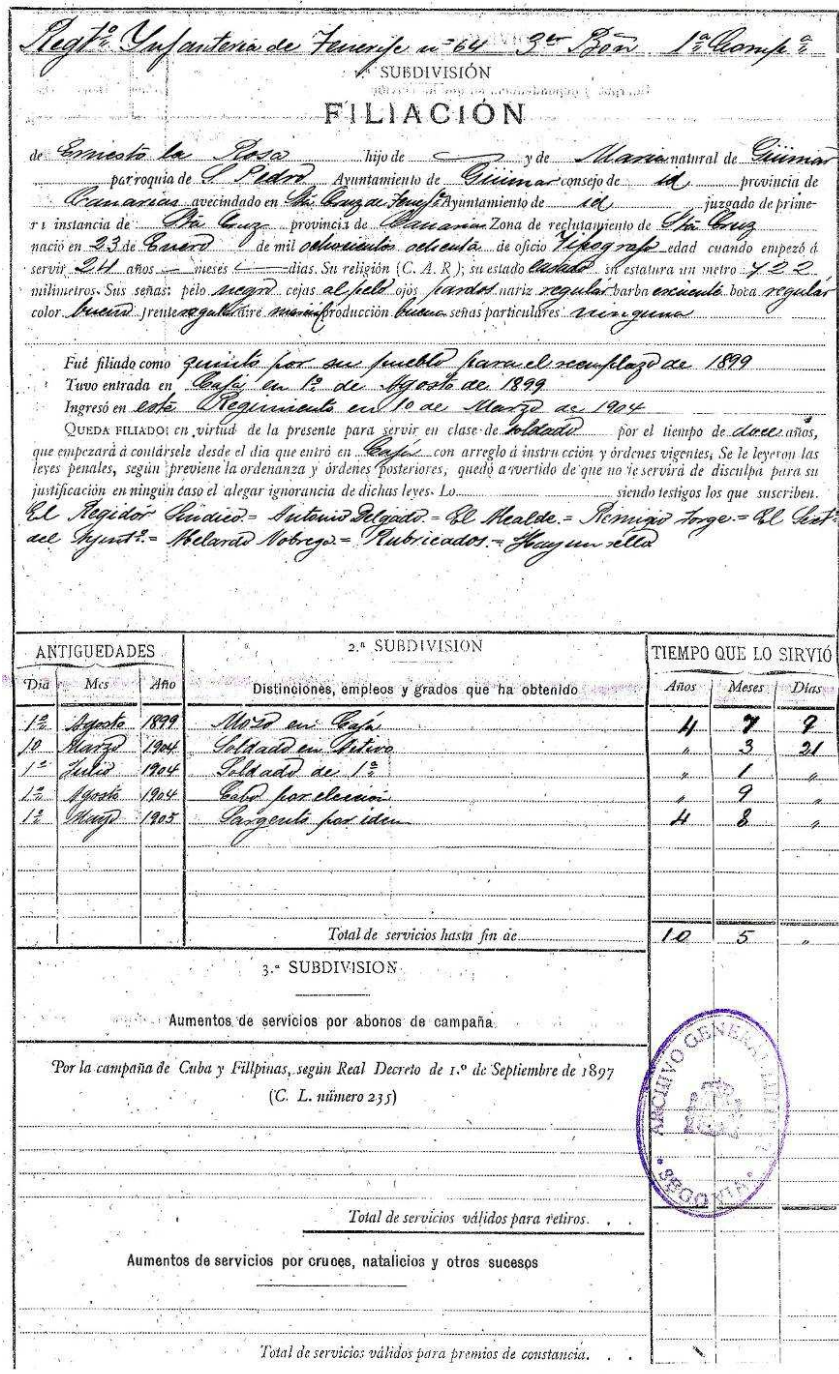 Regto Infantería de Tenerife nº 64 3er Bón 1ª Compª
1.ª SUBDIVISIÓN
FILIACIÓN
de Ernesto la Rosa hijo de — y de María natural de Güimar
parroquia de S. Pedro Ayuntamiento de Güimar consejo de id provincia de
Canarias avecindado en Sta Cruz de Tenefe Ayuntamiento de id juzgado de prime-
ra instancia de Sta Cruz provincia de Canarias Zona de reclutamiento de Sta Cruz
nació en 23 de Enero de mil ochocientos ochenta de oficio Tipografo edad cuando empezó á
servir 24 años — meses — dias. Su religión (C. A. R.); su estado casado su estatura un metro 722
milimetros. Sus señas: pelo negro cejas al pelo ojos pardos nariz regular barba boca regular
color bueno frente regular aire marcial producción buena señas particulares ninguna
Fué filiado como quinto por su pueblo para el reemplazo de 1899
Tuvo entrada en Caja en 1º de Agosto de 1899
Ingresó en este Regimiento en 10 de Marzo de 1904
QUEDA FILIADO: en virtud de la presente para servir en clase de soldado por el tiempo de doce años,
que empezará á contársele desde el dia que entró en Caja con arreglo á instrucción y órdenes vigentes; Se le leyeron las
leyes penales, según previene la ordenanza y órdenes posteriores, quedó advertido de que no le servirá de disculpa para su
justificación en ningún caso el alegar ignorancia de dichas leyes. Lo siendo testigos los que suscriben.
El Regidor Síndico.= Antonio Delgado.= El Alcalde.= Remigio Jorge.= El Sectº
del Ayuntº.= Abelardo Nobrega.= Rubricados.= Hay un sello
ANTIGUEDADES 2.ª SUBDIVISION TIEMPO QUE LO SIRVIÓ
Dia Mes Año Distinciones, empleos y grados que ha obtenido Años Meses Dias
1º Agosto 1899 Mozo en Caja 4 7 9
10 Marzo 1904 Soldado en Activo " 3 21
1º Julio 1904 Soldado de 1ª " 1 "
1º Agosto 1904 Cabo por elección " 9 "
1º Mayo 1905 Sargento por idem 4 8 "
Total de servicios hasta fin de 10 5 "
3.ª SUBDIVISION
Aumentos de servicios por abonos de campaña
Por la campaña de Cuba y Fillpinas, según Real Decreto de 1.º de Septiembre de 1897
(C. L. número 235)
ARCHIVO GENERAL MILITAR
SEGOVIA
Total de servicios válidos para retiros. . .
Aumentos de servicios por cruces, natalicios y otros sucesos
Total de servicios válidos para premios de constancia. . .